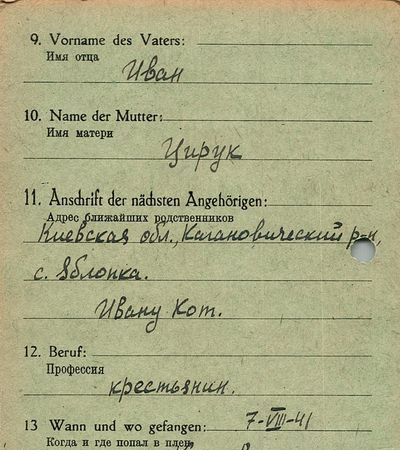 9. Vorname des Vaters:
Имя отца
Иван
10. Name der Mutter:
Имя матери
Цирук
11. Anschrift der nächsten Angehörigen:
Адрес ближайших родственников
Киевская обл., Кагановический р-н,
с. Яблонка.
Ивану Кот.
12. Beruf:
Профессия
крестьянин.
13 Wann und wo gefangen: 7-VIII-41
Когда и где попал в плен